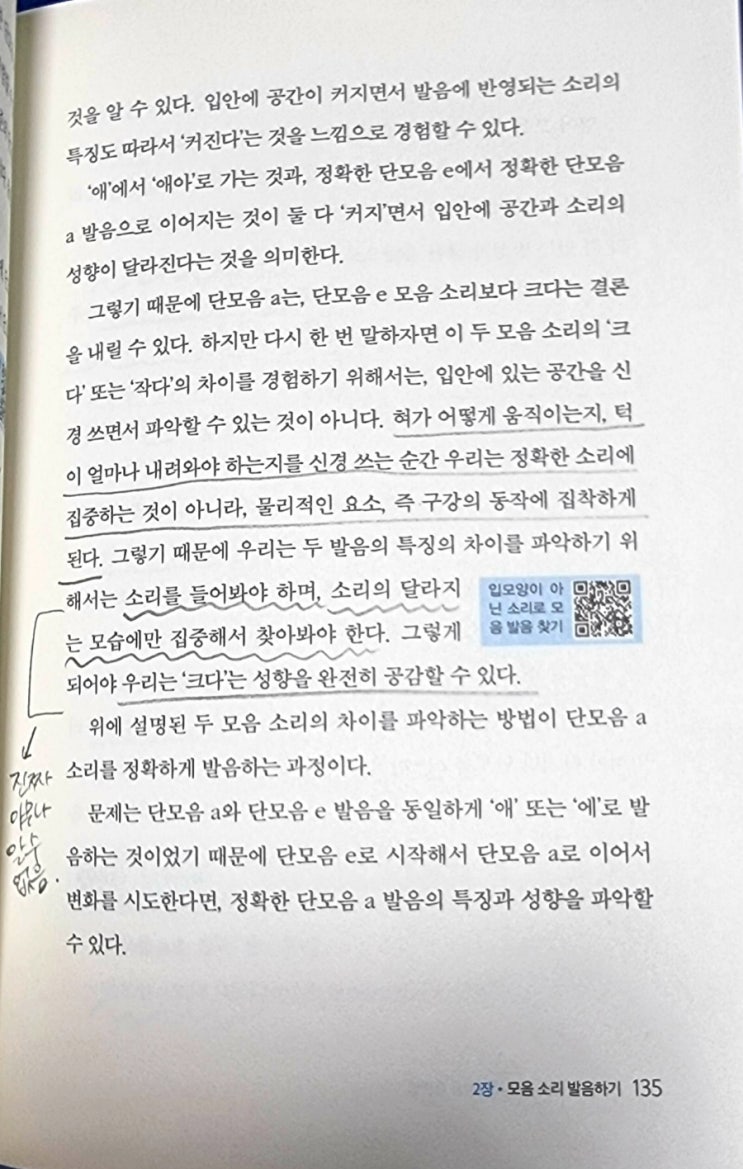 것을 알 수 있다. 입안에 공간이 커지면서 발음에 반영되는 소리의
특징도 따라서 ‘커진다’는 것을 느낌으로 경험할 수 있다.
‘애’에서 ‘애아’로 가는 것과, 정확한 단모음 e에서 정확한 단모음
a 발음으로 이어지는 것이 둘 다 ‘커지’면서 입안에 공간과 소리의
성향이 달라진다는 것을 의미한다.
그렇기 때문에 단모음 a는, 단모음 e 모음 소리보다 크다는 결론
을 내릴 수 있다. 하지만 다시 한 번 말하자면 이 두 모음 소리의 ‘크
다’ 또는 ‘작다’의 차이를 경험하기 위해서는, 입안에 있는 공간을 신
경 쓰면서 파악할 수 있는 것이 아니다. 혀가 어떻게 움직이는지, 턱
이 얼마나 내려와야 하는지를 신경 쓰는 순간 우리는 정확한 소리에
집중하는 것이 아니라, 물리적인 요소, 즉 구강의 동작에 집착하게
된다. 그렇기 때문에 우리는 두 발음의 특징의 차이를 파악하기 위
해서는 소리를 들어봐야 하며, 소리의 달라지
는 모습에만 집중해서 찾아봐야 한다. 그렇게
되어야 우리는 ‘크다’는 성향을 완전히 공감할 수 있다.
입모양이 아
닌 소리로 모
음 발음 찾기
위에 설명된 두 모음 소리의 차이를 파악하는 방법이 단모음 a
소리를 정확하게 발음하는 과정이다.
문제는 단모음 a와 단모음 e 발음을 동일하게 ‘애’ 또는 ‘에’로 발
음하는 것이었기 때문에 단모음 e로 시작해서 단모음 a로 이어서
변화를 시도한다면, 정확한 단모음 a 발음의 특징과 성향을 파악할
수 있다.
진짜
아무나
알 수
없음.
2장 • 모음 소리 발음하기 135